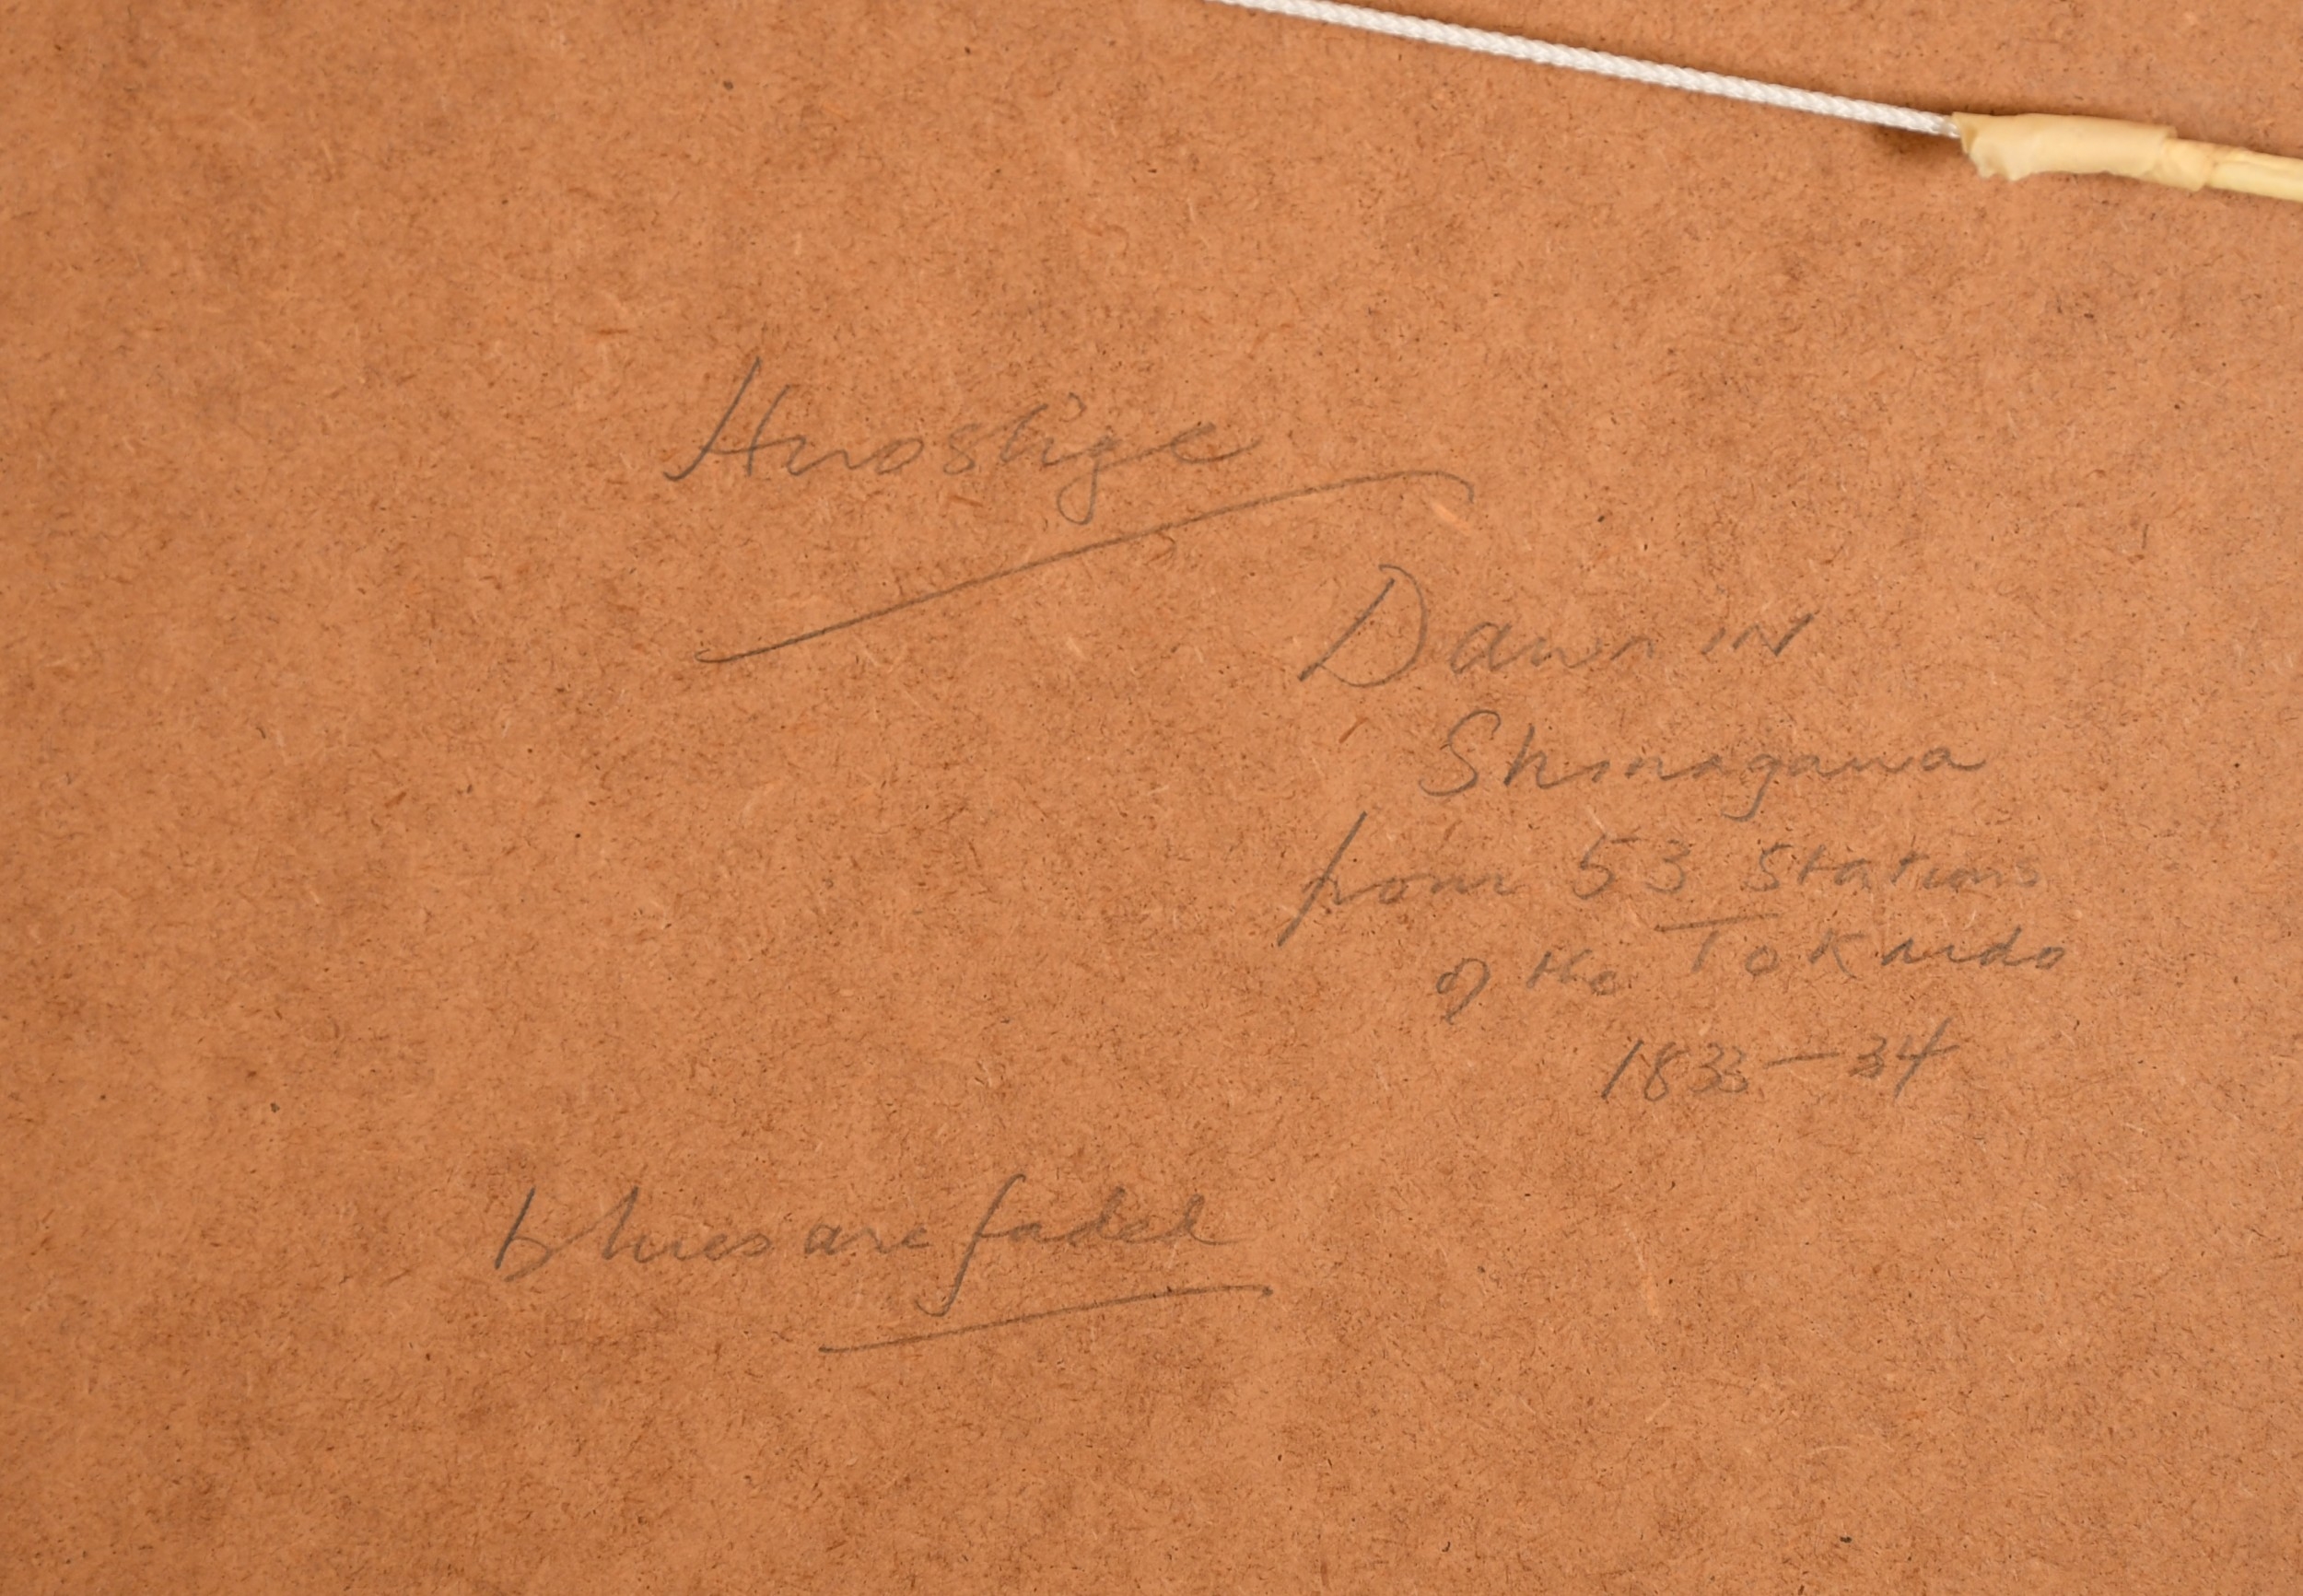 Hiroshige
Dawn IN
Shinagawa
from 53 Stations
of the Tokaido
1833-34
blues are faded